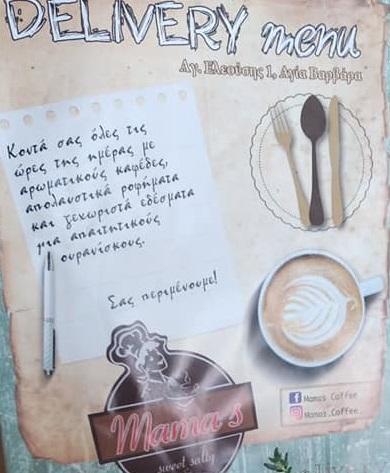 DELIVERY menu
Αγ. Ελεούσης 1, Αγία Βαρβάρα
Κοντά σας όλες τις
ώρες της ημέρας με
αρωματικούς καφέδες,
απολαυστικά ροφήματα
και ξεχωριστά εδέσματα
για απαιτητικούς
ουρανίσκους.
Σας περιμένουμε!
Mama's
sweet salty
Mamas Coffee
Mamas.Coffee